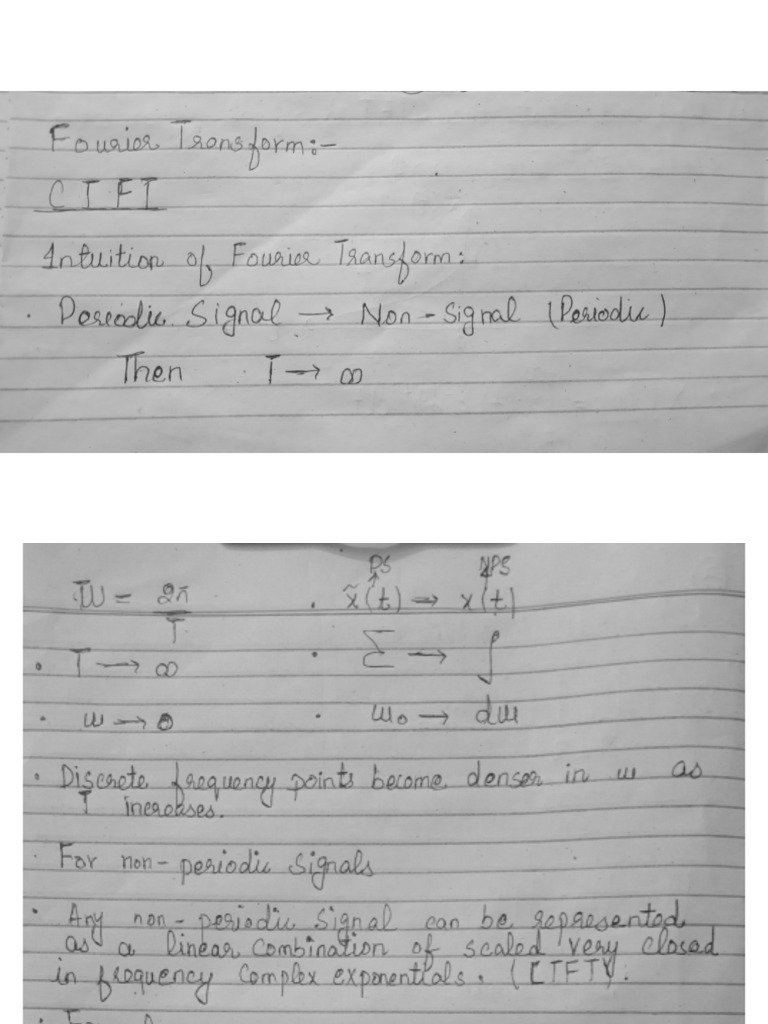 Fourier Transform:-
CTFT
Intuition of Fourier Transform:
· Periodic Signal → Non-Signal (Periodic)
Then T → ∞
PS NPS
W = 2π / T · x̃(t) → x(t)
• T → ∞ · Σ → ∫
· ω → 0 · ω₀ → dω
• Discrete frequency points become denser in ω as
T increases.
· For non-periodic Signals
• Any non-periodic Signal can be represented
as a linear combination of scaled very closed
in frequency complex exponentials. (CTFT).